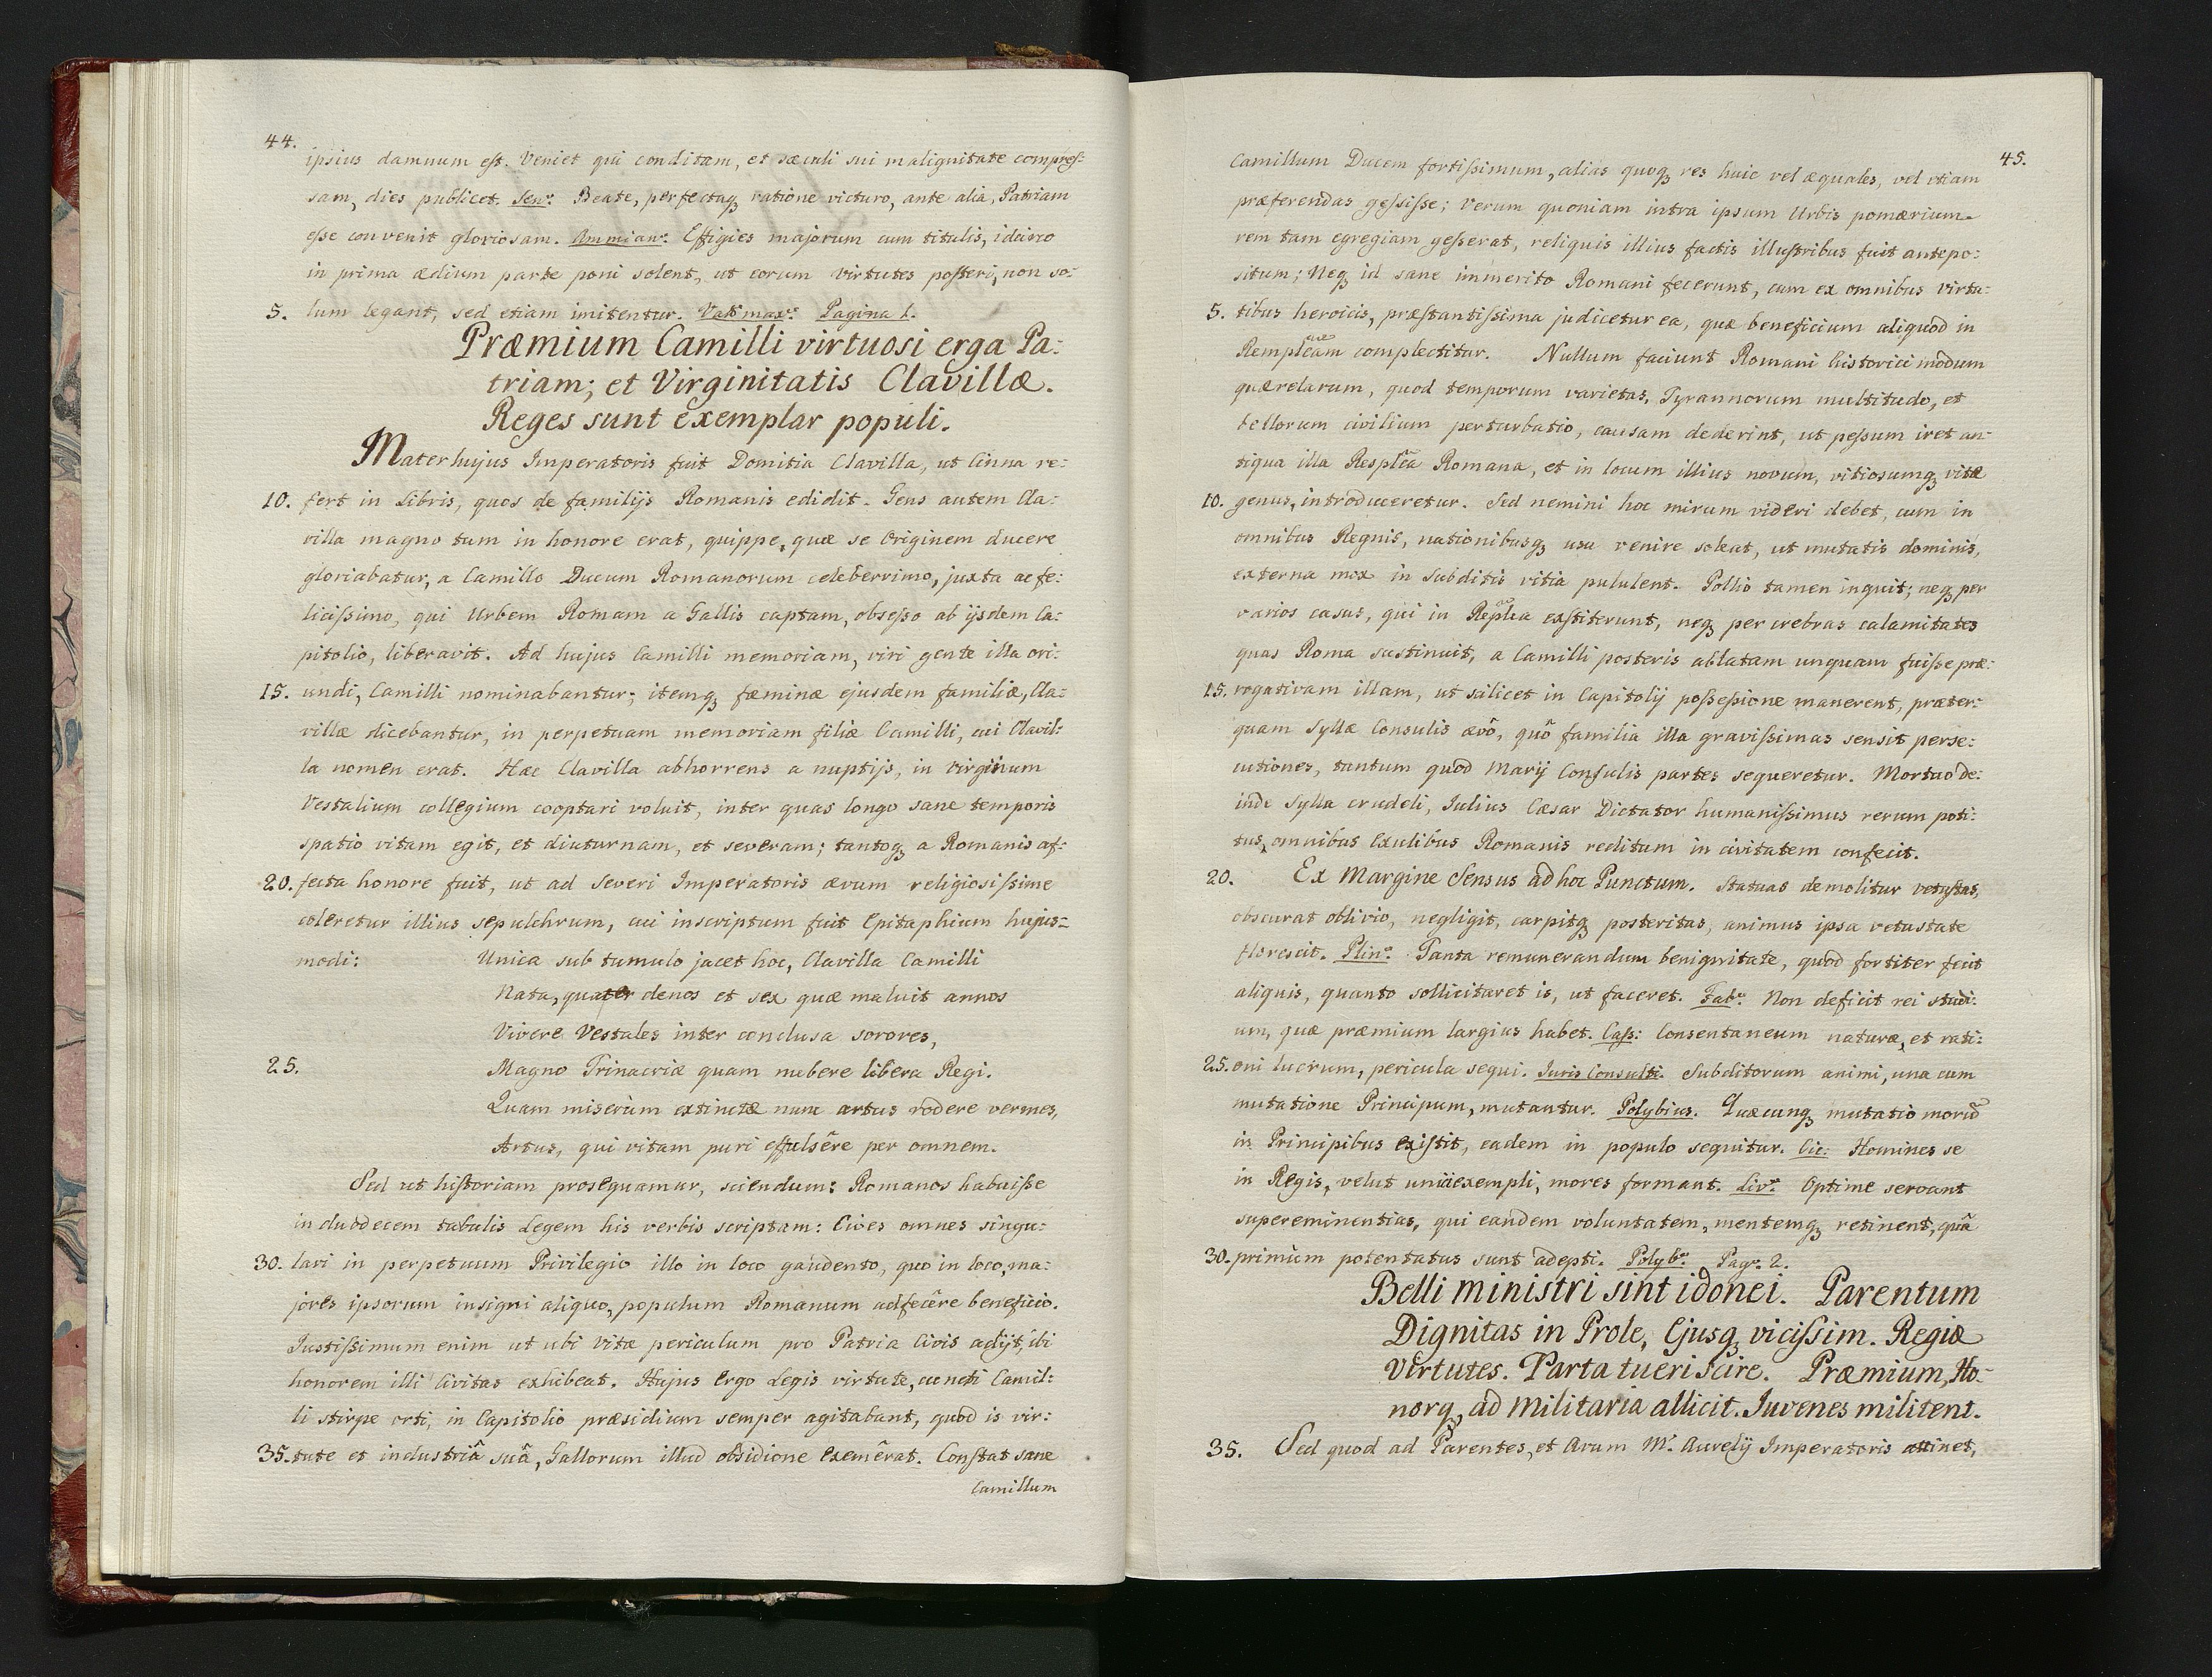 44.
ipsius damnum est. Veniet qui conditam, et sæculi sui malignitate compres:
sam, dies publicet. Sen: Beate, perfectaq; ratione victuro, ante alia, Patriam
esse convenit gloriosam. Ammian: Effigies majorum cum titulis, idcirco
in prima ædium parte poni solent, ut eorum virtutes posteri, non so:
5. lum legant, sed etiam imitentur. Val: max: Pagina 1.
Præmium Camilli virtuosi erga Pa:
triam; et Virginitatis Clavillæ.
Reges sunt exemplar populi.
Mater hujus Imperatoris fuit Domitia Clavilla, ut Cinna re:
10. fert in Libris, quos de familijs Romanis edidit. Gens autem Cla:
villa magno tum in honore erat, quippe, quæ se Originem ducere
gloriabatur, a Camillo Ducum Romanorum celeberrimo, juxta ac fe:
licissimo, qui Urbem Romam a Gallis captam, obsesso ab ijsdem Ca:
pitolio, liberavit. Ad hujus Camilli memoriam, viri gente illa ori:
15. undi, Camilli nominabantur; itemq; fæminæ ejusdem familiæ, Cla:
villæ dicebantur, in perpetuam memoriam filiæ Camilli, cui Clavil:
la nomen erat. Hæc Clavilla abhorrens a nuptijs, in virginum
Vestalium collegium cooptari voluit, inter quas longo sane temporis
spatio vitam egit, et diuturnam, et severam; tantoq; a Romanis af:
20. fecta honore fuit, ut ad Severi Imperatoris ævum religiosissime
coleretur illius sepulchrum, cui inscriptum fuit Epitaphium hujus=
modi: Unica sub tumulo jacet hoc, Clavilla Camilli
Nata, quater denos et sex quæ maluit annos
Vivere Vestales inter conclusa sorores,
25. Magno Trinacriæ quam nubere libera Regi.
Quam miserùm extinctæ nunc artus rodere vermes,
Artus, qui vitam puri effulsêre per omnem.
Sed ut historiam prosequamur, sciendum: Romanos habuisse
in duodecem tabulis Legem his verbis scriptam: Cives omnes singu:
30. lari in perpetuum Privilegio illo in loco gaudento, quo in loco, ma:
jores ipsorum insigni aliquo, populum Romanum adfecêre beneficio.
Justissimum enim ut ubi vitæ periculum pro Patria Civis adijt, ibi
honorem illi Civitas exhibeat. Hujus Ergo Legis virtute, cuncti Camil:
li stirpe orti, in Capitolio præsidium semper agitabant, quod is vir:
35. tute et industriâ suâ, Gallorum illud obsidione exemêrat. Constat sane
Camillum
45.
Camillum Ducem fortissimum, alias quoq; res huic vel æquales, vel etiam
præferendas gessisse; Verum quoniam intra ipsum Urbis pomærium
rem tam egregiam gesserat, reliquis illius factis illustribus fuit antepo:
situm; Neq; id sane immerito Romani fecerunt, cum ex omnibus virtu:
5. tibus heroicis, præstantissima judicetur ea, quæ beneficium aliquod in
Rempleam complectitur. Nullum faciunt Romani historici modum
quærelarum, quod temporum varietas, Tyrannorum multitudo, et
bellorum civilium perturbatio, causam dederint, ut pessum iret an:
tiqua illa Resplĉa Romana, et in locum illius novum, vitiosumq; vitæ
10. genus, introduceretur. Sed nemini hoc mirum videri debet, cum in
omnibus Regnis, nationibusq; usu venire soleat, ut mutatis dominis,
externa mox in subditis vitia pululent. Pollio tamen inquit; neq; per
varios casus, qui in Replca exstiterunt, neq; per crebras calamitates
quas Roma sustinuit, a Camilli posteris ablatam unquam fuisse præ:
15. rogativam illam, ut scilicet in Capitolij possessione manerent, præter:
quam Syllæ Consulis ævô, quô familia illa gravissimas sensit perse:
cutiones, tantum quod Marij Consulis partes sequeretur. Mortuo de:
inde Sylla crudeli, Julius Cæsar Dictator humanissimus rerum poti:
tus, omnibus Exulibus Romanis reditum in civitatem confecit.
20. Ex Margine Sensus ad hoc Punctum. Statuas demolitur vetustas,
obscurat oblivio, negligit, carpitq; posteritas, animus ipsa vetustate
florescit. Plin: Tanta remunerandum benignitate, quod fortiter fecit
aliquis, quanto sollicitaret is, ut faceret. Fab: Non deficit rei studi:
um, quæ præmium largius habet. Cass: Consentaneum naturæ, et rati:
25. oni lucrum, pericula sequi. Juris Consulti. Subditorum animi, una cum
mutatione Principum, mutantur. Polybius. Quæcunq; mutatio morū
in Principibus existit, eadem in populo sequitur. Cic: Homines se
in Regis, velut unici exempli, mores formant. Liv: Optime servant
supereminentias, qui eandem voluntatem, mentemq; retinent, quâ
30. primùm potentatus sunt adepti. Polyb: Pag: 2.
Belli ministri sint idonei. Parentum
Dignitas in Prole, Ejusq; vicissim. Regiæ
Virtutes. Parta tueri scire. Præmium, Ho=
norq; ad militaria allicit. Juvenes militent.
35. Sed quod ad Parentes, et Avum M: Aurelij Imperatoris attinet,